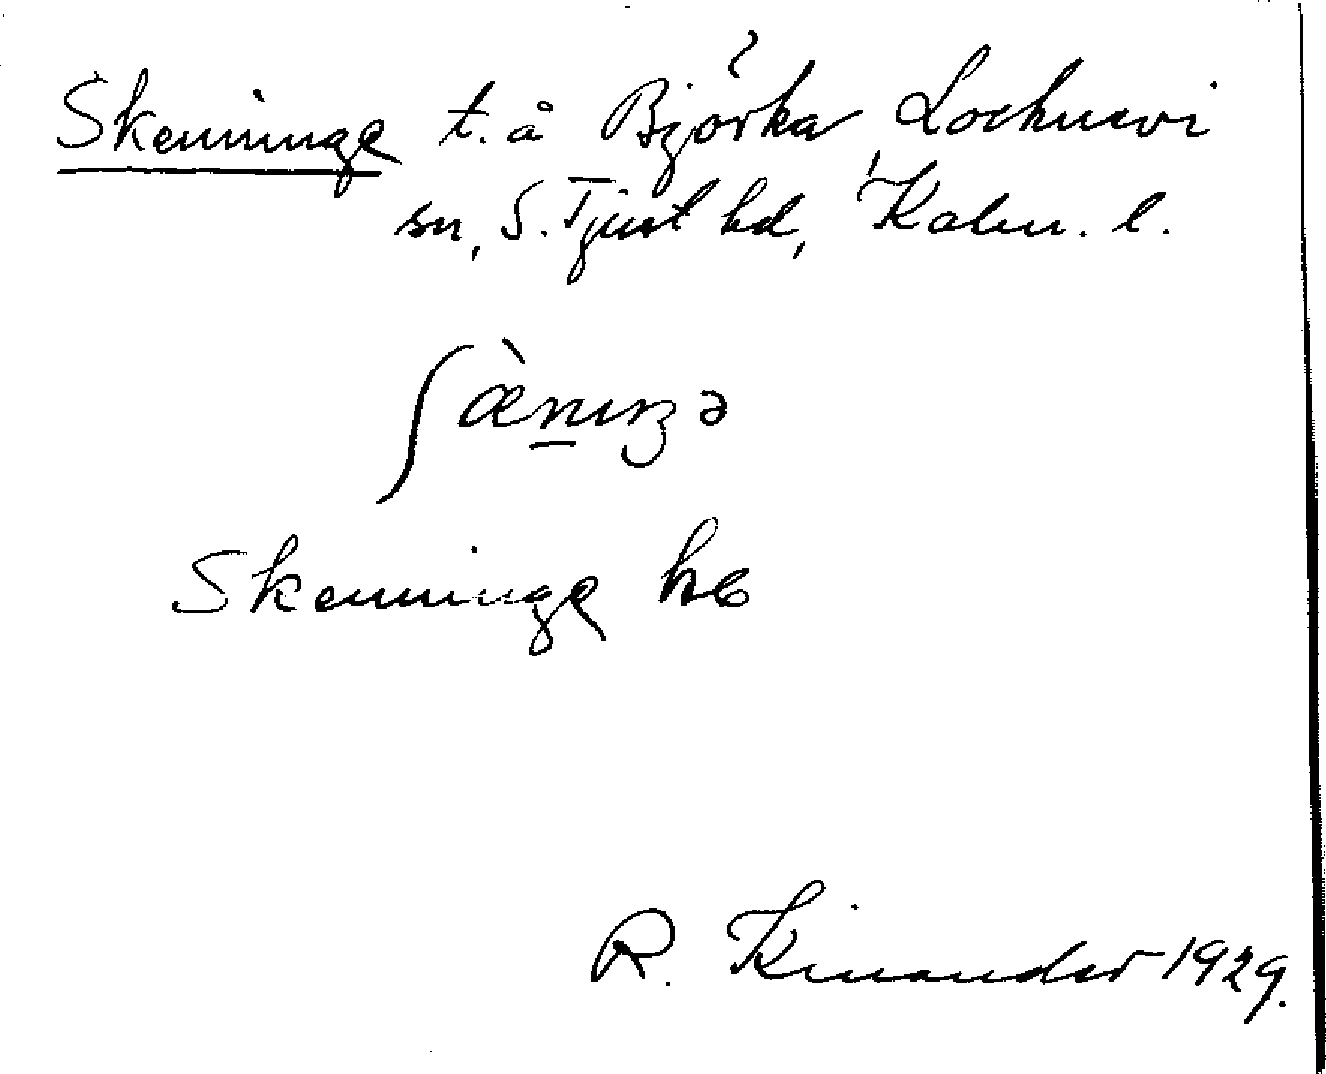 Skenninge t. å Björka Lochnevi
sn, S. Tjust hd, Kalm. l.
ʃæ̀nıŋə
Skenninge hc
R. Kinander 1929.